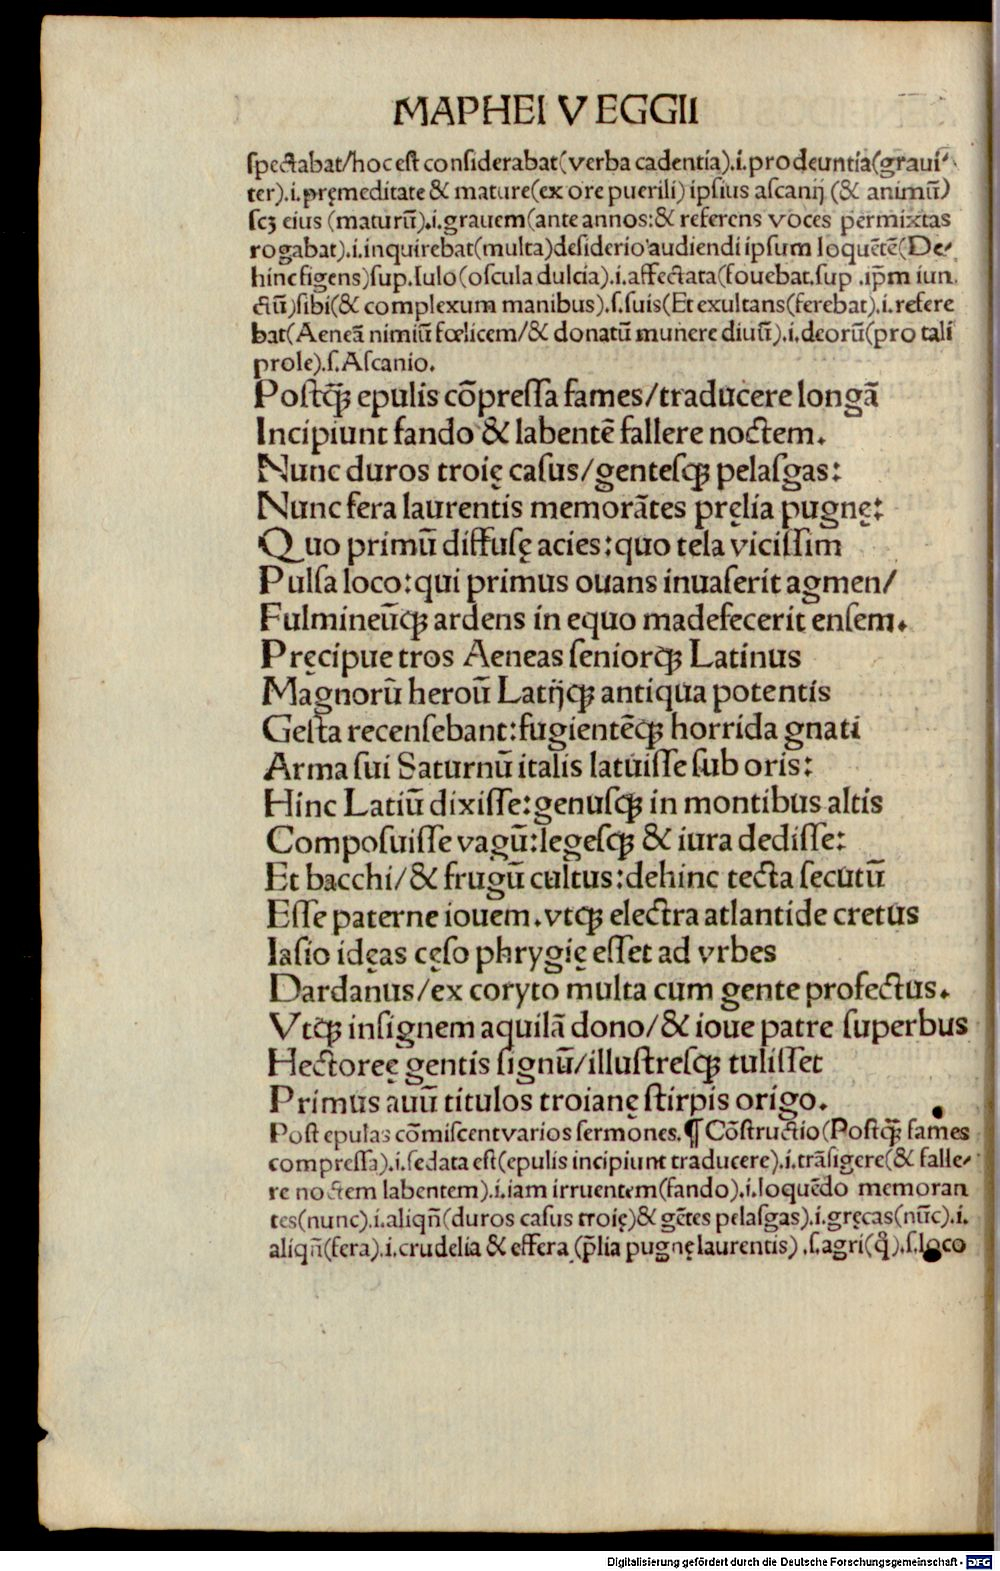 MAPHEI VEGGII
spectabat/hoc est considerabat(verba cadentia).i.prodeuntia(graui-
ter).i.pręmeditate & mature(ex ore puerili) ipsius ascanij (& animū)
scꝫ eius (maturū).i.grauem(ante annos:& referens voces permixtas
rogabat).i.inquirebat(multa)desiderio audiendi ipsum loquētē(De-
hinc figens)sup.Iulo(oscula dulcia).i.affectata(fouebat.sup .ip̄m iun
ctū)sibi(& complexum manibus).s.suis(Et exultans(ferebat).i.refere
bat(Aeneā nimiū fœlicem/& donatū munere diuū).i.deorū(pro tali
prole).s.Ascanio.
Postꝗ̄ epulis cōpressa fames/traducere longā
Incipiunt fando & labentē fallere noctem.
Nunc duros troię casus/gentesqꝫ pelasgas:
Nunc fera laurentis memorātes pręlia pugnę:
Quo primū diffusę acies:quo tela vicissim
Pulsa loco:qui primus ouans inuaserit agmen/
Fulmineūqꝫ ardens in equo madefecerit ensem.
Pręcipue tros Aeneas seniorqꝫ Latinus
Magnorū heroū Latijqꝫ antiqua potentis
Gesta recensebant:fugientēqꝫ horrida gnati
Arma sui Saturnū italis latuisse sub oris:
Hinc Latiū dixisse:genusqꝫ in montibus altis
Composuisse vagū:legesqꝫ & iura dedisse:
Et bacchi/& frugū cultus:dehinc tecta secutū
Esse paterne iouem.vtqꝫ electra atlantide cretus
Iasio idęas cęso phrygię esset ad vrbes
Dardanus/ex coryto multa cum gente profectus.
Vtqꝫ insignem aquilā dono/& ioue patre superbus
Hectoreę gentis signū/illustresqꝫ tulisset
Primus auū titulos troianę stirpis origo.
Post epulas cōmiscent varios sermones.¶ Cōstructio(Postꝗ̄ fames
compressa).i.sedata est(epulis incipiunt traducere).i.trāsigere(& falle-
re noctem labentem).i.iam irruentem(fando).i.loquēdo memoran
tes(nunc).i.aliqn̄(duros casus troię)& gētes pelasgas).i.gręcas(nūc).i.
aliqn̄(fera).i.crudelia & effera (p̄lia pugnę laurentis) .s.agri(qͦ).s.loco
Digitalisierung gefördert durch die Deutsche Forschungsgemeinschaft - DFG